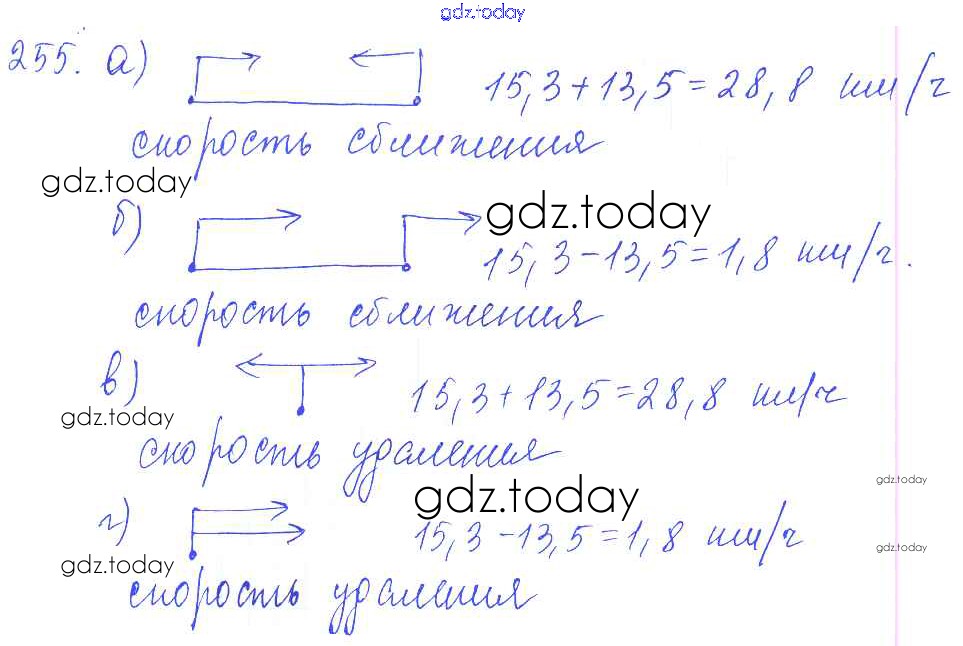 gdz.today
255. а) 15,3+13,5=28,8 км/ч
скорость сближения
gdz.today
б) gdz.today
15,3-13,5=1,8 км/ч.
скорость сближения
в) 15,3+13,5=28,8 км/ч
gdz.today
скорость удаления
gdz.today
gdz.today
г) 15,3-13,5=1,8 км/ч
gdz.today
gdz.today
скорость удаления